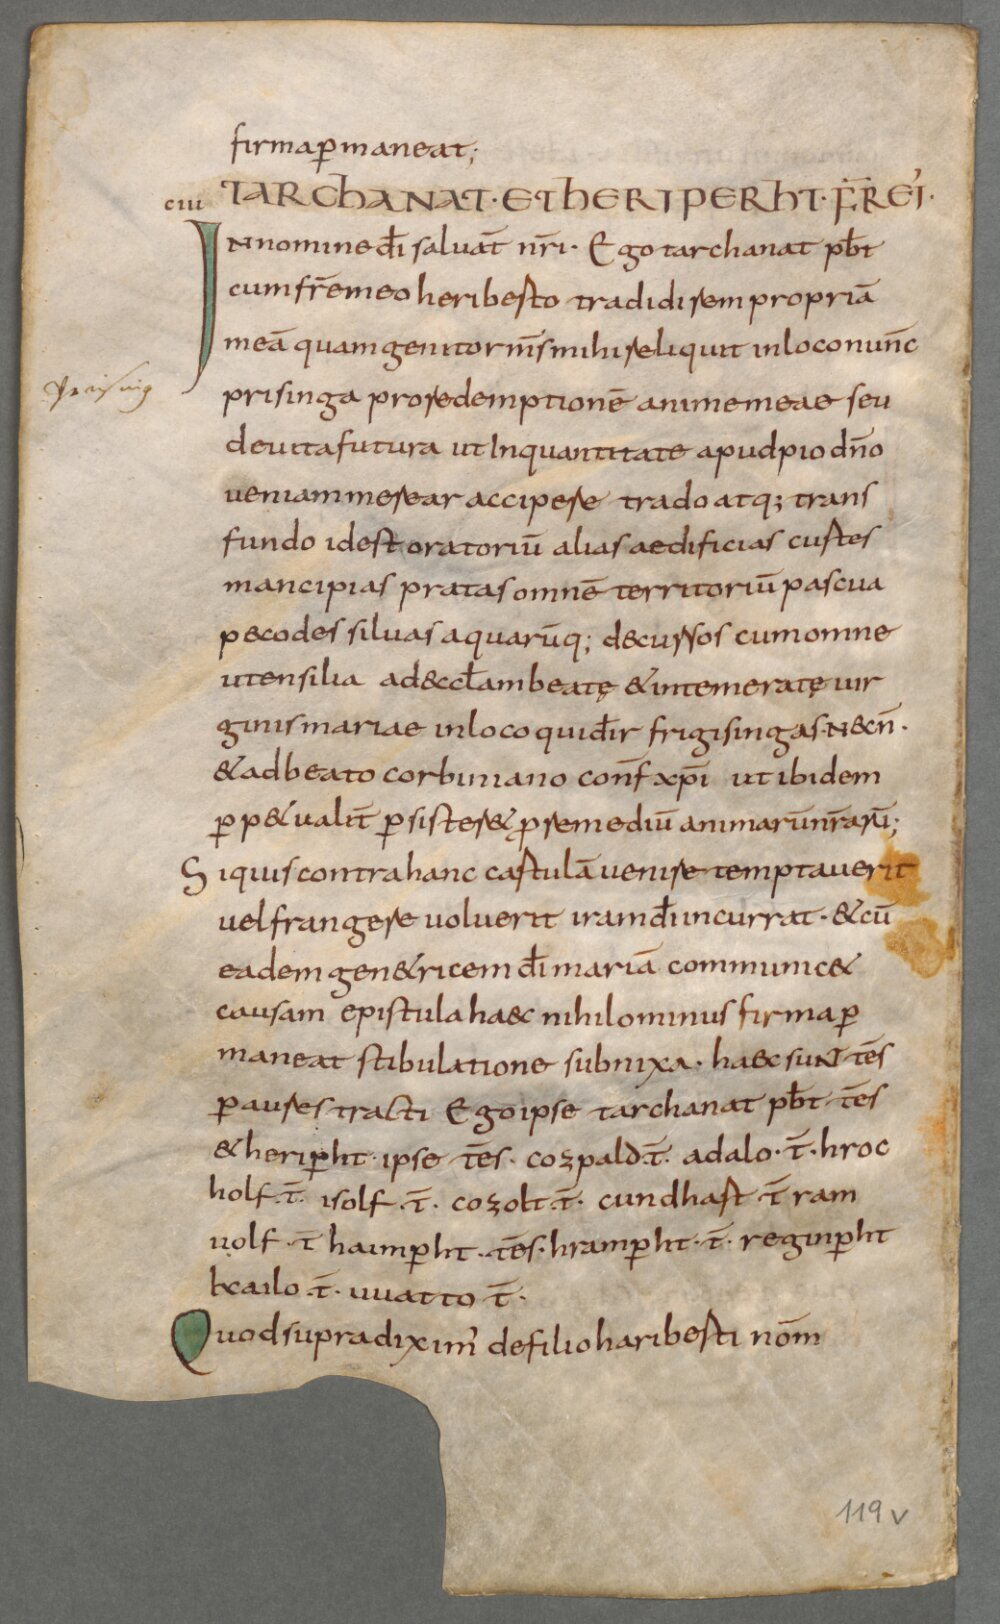 firma ꝑmaneat;
ciii TARChANAT· ET hERIPERhT· F̄REI·
IN nomine dī saluat̄ nr̄i· Ego tarchanat pƀt
cum fr̄e meo heriberto tradidi rem propriā
meā quam genitor m̄s mihi reliquit in loco nun̄c
Preising
prisinga pro redemptionē animemeae seu
deuita futura ut In quantitate apud pio dn̄o
ueniam merear accipere trado atq; trans
fundo id est oratoriū alias aedificias curtes
mancipias pratas omnē territoriū pascua
pecodes siluas aquarūq; decursos cum omne
utensilia ad &ccƚam beatę & intemeratę uir
ginis mariae in loco qui dr̄ frigisingas· N&cn̄·
& ad beato corbiniano conf̄ xp̄i ut ibidem
ꝑp&ualit̄ ꝑsister& ꝓ remediū animarū nr̄arū;
Siquis contra hanc cartulā uenire temptauerit
uel frangere uoluerit iram dī incurrat· & cū
eadem gen&ricem dī mariā communic&
causam epistula haec nihilominus firma ꝑ
maneat stibulatione subnixa· haec suNt tēs
ꝑ aures tracti Ego ipse tarchanat pƀt· tēs
& heriꝑht· ipse tēs· cozpald·t̄· adalo·t̄· hroc
holf·t̄· isolf·t̄· cozolt·t̄· cundhart·t̄ ram
uolf·t̄ haimꝑht·tēs· hramꝑht·t̄· reginꝑht
kcailo·t̄· uuatto t̄·
Quod supra dixim' de filio hariberti nōm
119v